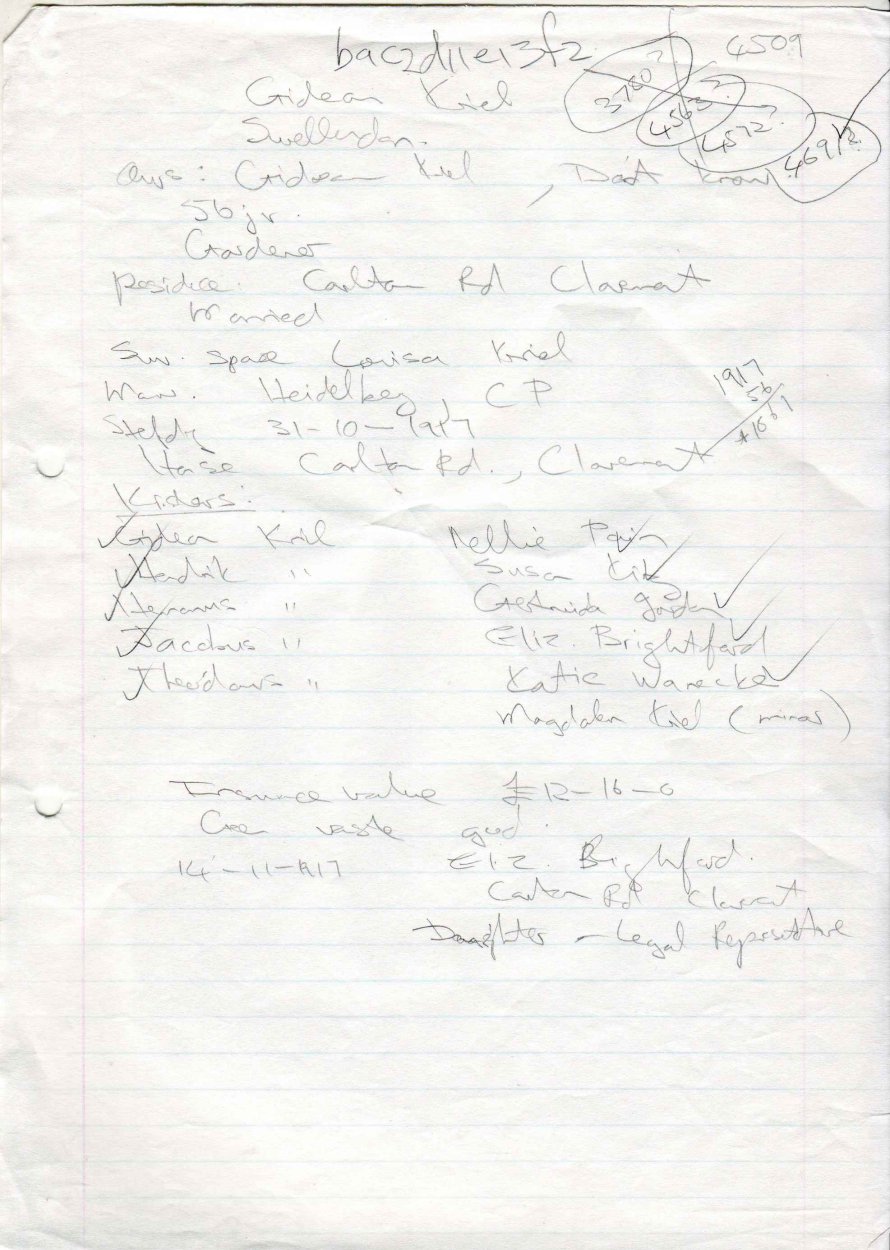 bac2d11e13f2
4509
3780?
4563?
4572?
4691?
Gideon Kriel
Swellendam.
Ows: Gideon Kriel, Don't know
56 jr.
Gardener
Residice: Carlton Rd Claremont
Married
Surv. spouse Louisa Kriel
Marr. Heidelberg, C P
Sterfdg 31-10-1917
1917
56
±1861
Huise Carlton Rd., Claremont
Kinders:
Gideon Kriel
Nellie
Hendrik "
Susan
Hermanus "
Gertruida Jordan
Jacobus "
Eliz. Brightford
Theodorus "
Katie Warecke
Magdalen Kriel (minor)
Insurance value £12-16-0
Geen vaste goed.
14-11-1917
Eliz. Brightford.
Carlton Rd Claremont
Daughter - Legal Representative